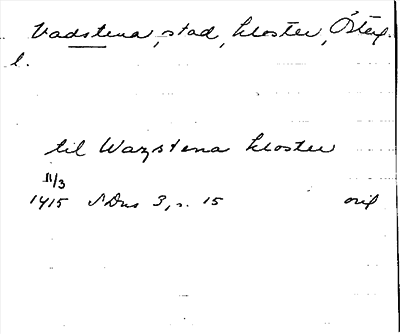 Vadstena, stad, kloster, Östergl.
l.
til Wazstena kloster
11/3
1415 SDns 3, s. 15 orig